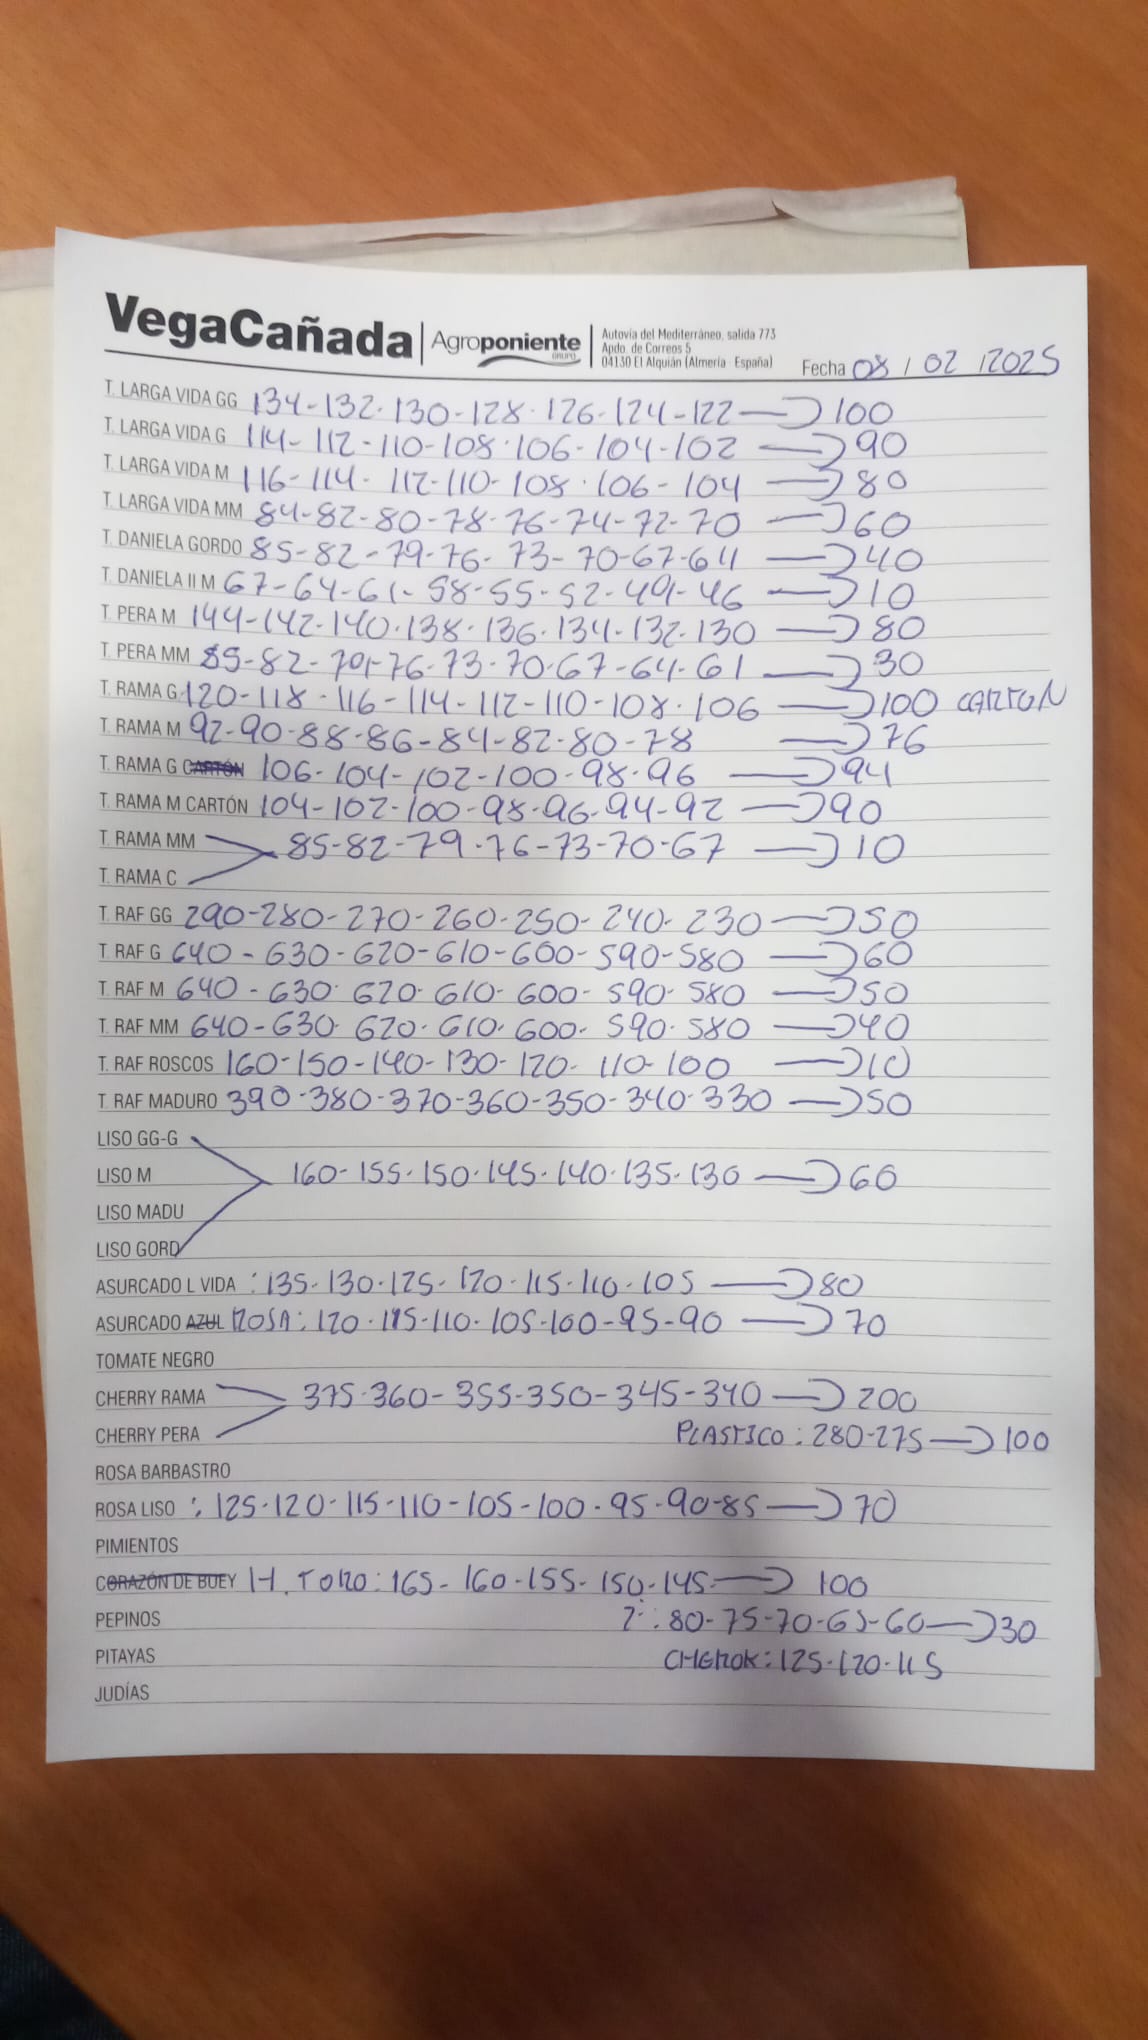 VegaCañada
Agroponiente
GRUPO
Autovía del Mediterráneo, salida 773
Apdo. de Correos 5
04130 El Alquián (Almería España)
Fecha 08 / 02 /2025
T. LARGA VIDA GG 134-132-130-128-126-124-122 → 100
T. LARGA VIDA G 114-112-110-108-106-104-102 → 90
T. LARGA VIDA M 116-114-112-110-108-106-104 → 80
T. LARGA VIDA MM 84-82-80-78-76-74-72-70 → 60
T. DANIELA GORDO 85-82-79-76-73-70-67-64 → 40
T. DANIELA II M 67-64-61-58-55-52-49-46 → 10
T. PERA M 144-142-140-138-136-134-132-130 → 80
T. PERA MM 85-82-79-76-73-70-67-64-61 → 30
T. RAMA G 120-118-116-114-112-110-108-106 → 100 CARTON
T. RAMA M 92-90-88-86-84-82-80-78 → 76
T. RAMA G CARTÓN 106-104-102-100-98-96 → 94
T. RAMA M CARTÓN 104-102-100-98-96-94-92 → 90
T. RAMA MM 85-82-79-76-73-70-67 → 10
T. RAMA C
T. RAF GG 290-280-270-260-250-240-230 → 50
T. RAF G 640-630-620-610-600-590-580 → 60
T. RAF M 640-630-620-610-600-590-580 → 50
T. RAF MM 640-630-620-610-600-590-580 → 40
T. RAF ROSCOS 160-150-140-130-120-110-100 → 10
T. RAF MADURO 390-380-370-360-350-340-330 → 50
LISO GG-G
LISO M 160-155-150-145-140-135-130 → 60
LISO MADU
LISO GORD
ASURCADO L VIDA : 135-130-125-120-115-110-105 → 80
ASURCADO AZUL ROSA: 120-115-110-105-100-95-90 → 70
TOMATE NEGRO
CHERRY RAMA 375-360-355-350-345-340 → 200
CHERRY PERA PLASTICO: 280-275 → 100
ROSA BARBASTRO
ROSA LISO : 125-120-115-110-105-100-95-90-85 → 70
PIMIENTOS
CORAZÓN DE BUEY H. TORO: 165-160-155-150-145 → 100
PEPINOS 2ª: 80-75-70-65-60 → 30
PITAYAS CHEROK: 125-120-115
JUDÍAS